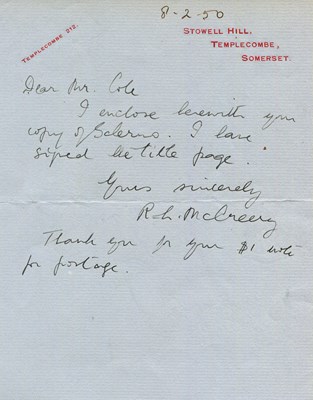 8-2-50
TEMPLECOMBE 212.
STOWELL HILL,
TEMPLECOMBE,
SOMERSET.
Dear Mr. Cole
I enclose herewith your
copy of Salerno. I have
signed the title page.
Yours sincerely
R.L. McCreery
Thank you for your $1 note
for postage.